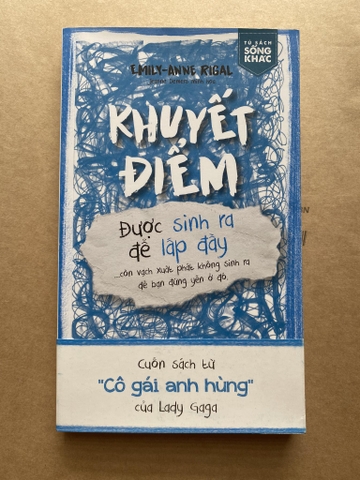 TỦ SÁCH
SỐNG
KHÁC
EMILY-ANNE RIGAL
KHUYẾT
ĐIỂM
Được sinh ra
để lấp đầy
...còn vạch xuất phát không sinh ra
để bạn đứng yên ở đó.
Cuốn sách từ
"Cô gái anh hùng"
của Lady Gaga